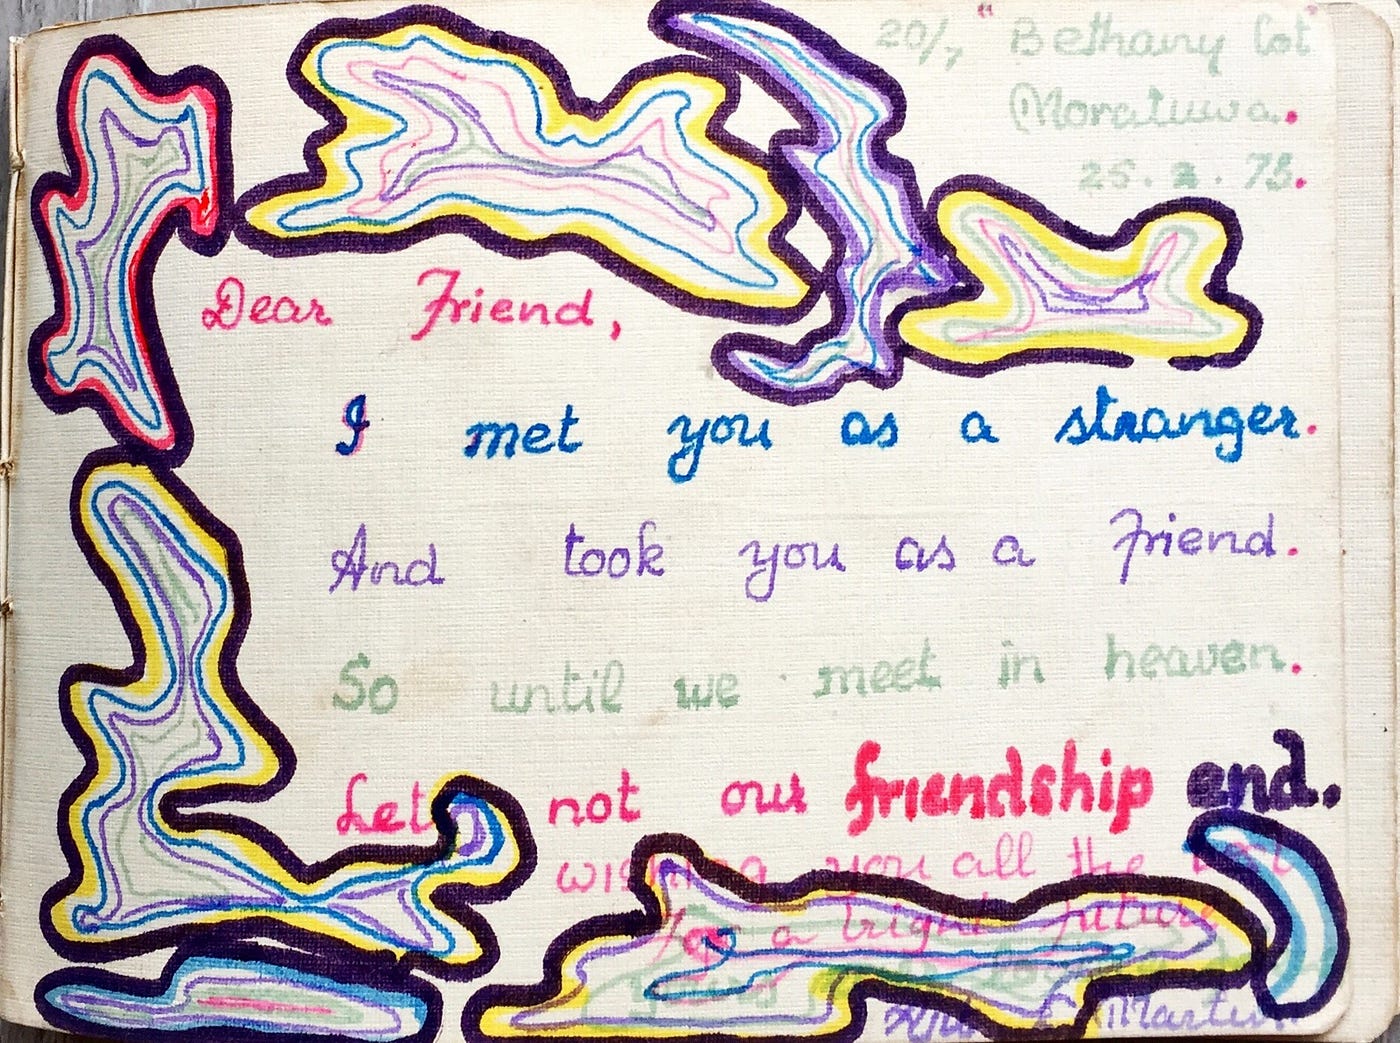 20/7 "Bethany Cot"
Moratuwa.
25.2.75.
Dear Friend,
I met you as a stranger.
And took you as a friend.
So until we meet in heaven.
Let not our friendship end.
wishing you all the best
For a bright future